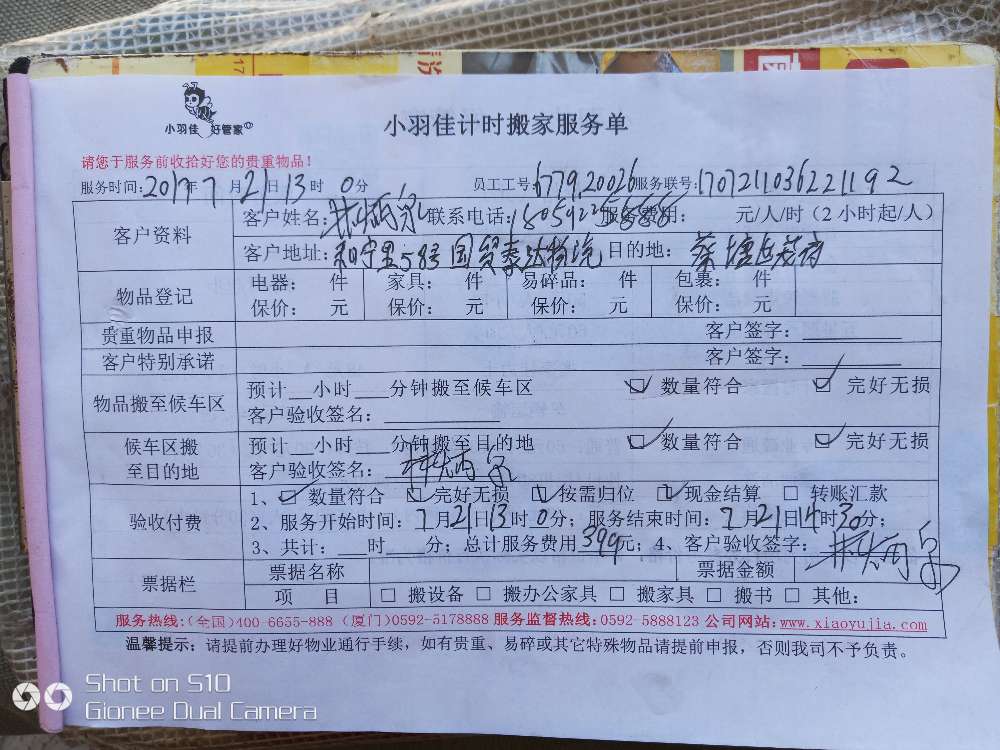 小羽佳 好管家
小羽佳计时搬家服务单
请您于服务前收拾好您的贵重物品!
服务时间:2017年7月21日13时0分 员工工号:6779,20026 服务联号:1707211036221192
客户资料
客户姓名: 联系电话: 服务费用: 元/人/时(2小时起/人)
客户地址:和宁里583国贸泰达 目的地:蔡塘
物品登记
电器: 件 家具: 件 易碎品: 件 包裹: 件
保价: 元 保价: 元 保价: 元 保价: 元
贵重物品申报 客户签字:
客户特别承诺 客户签字:
物品搬至候车区
预计__小时___分钟搬至候车区 ☑ 数量符合 ☑ 完好无损
客户验收签名:
候车区搬至目的地
预计__小时___分钟搬至目的地 ☑ 数量符合 ☑ 完好无损
客户验收签名:
验收付费
1、☑ 数量符合 ☑ 完好无损 ☑ 按需归位 ☑ 现金结算 □ 转账汇款
2、服务开始时间:7月21日13时0分;服务结束时间:7月21日14时30分;
3、共计:___时___分;总计服务费用399元;4、客户验收签字:
票据栏
票据名称 票据金额
项 目 □ 搬设备 □ 搬办公家具 □ 搬家具 □ 搬书 □ 其他:
服务热线:(全国)400-6655-888 (厦门)0592-5178888 服务监督热线:0592-5888123 公司网站:www.xiaoyujia.com
温馨提示:请提前办理好物业通行手续,如有贵重、易碎或其它特殊物品请提前申报,否则我司不予负责。
Shot on S10
Gionee Dual Camera